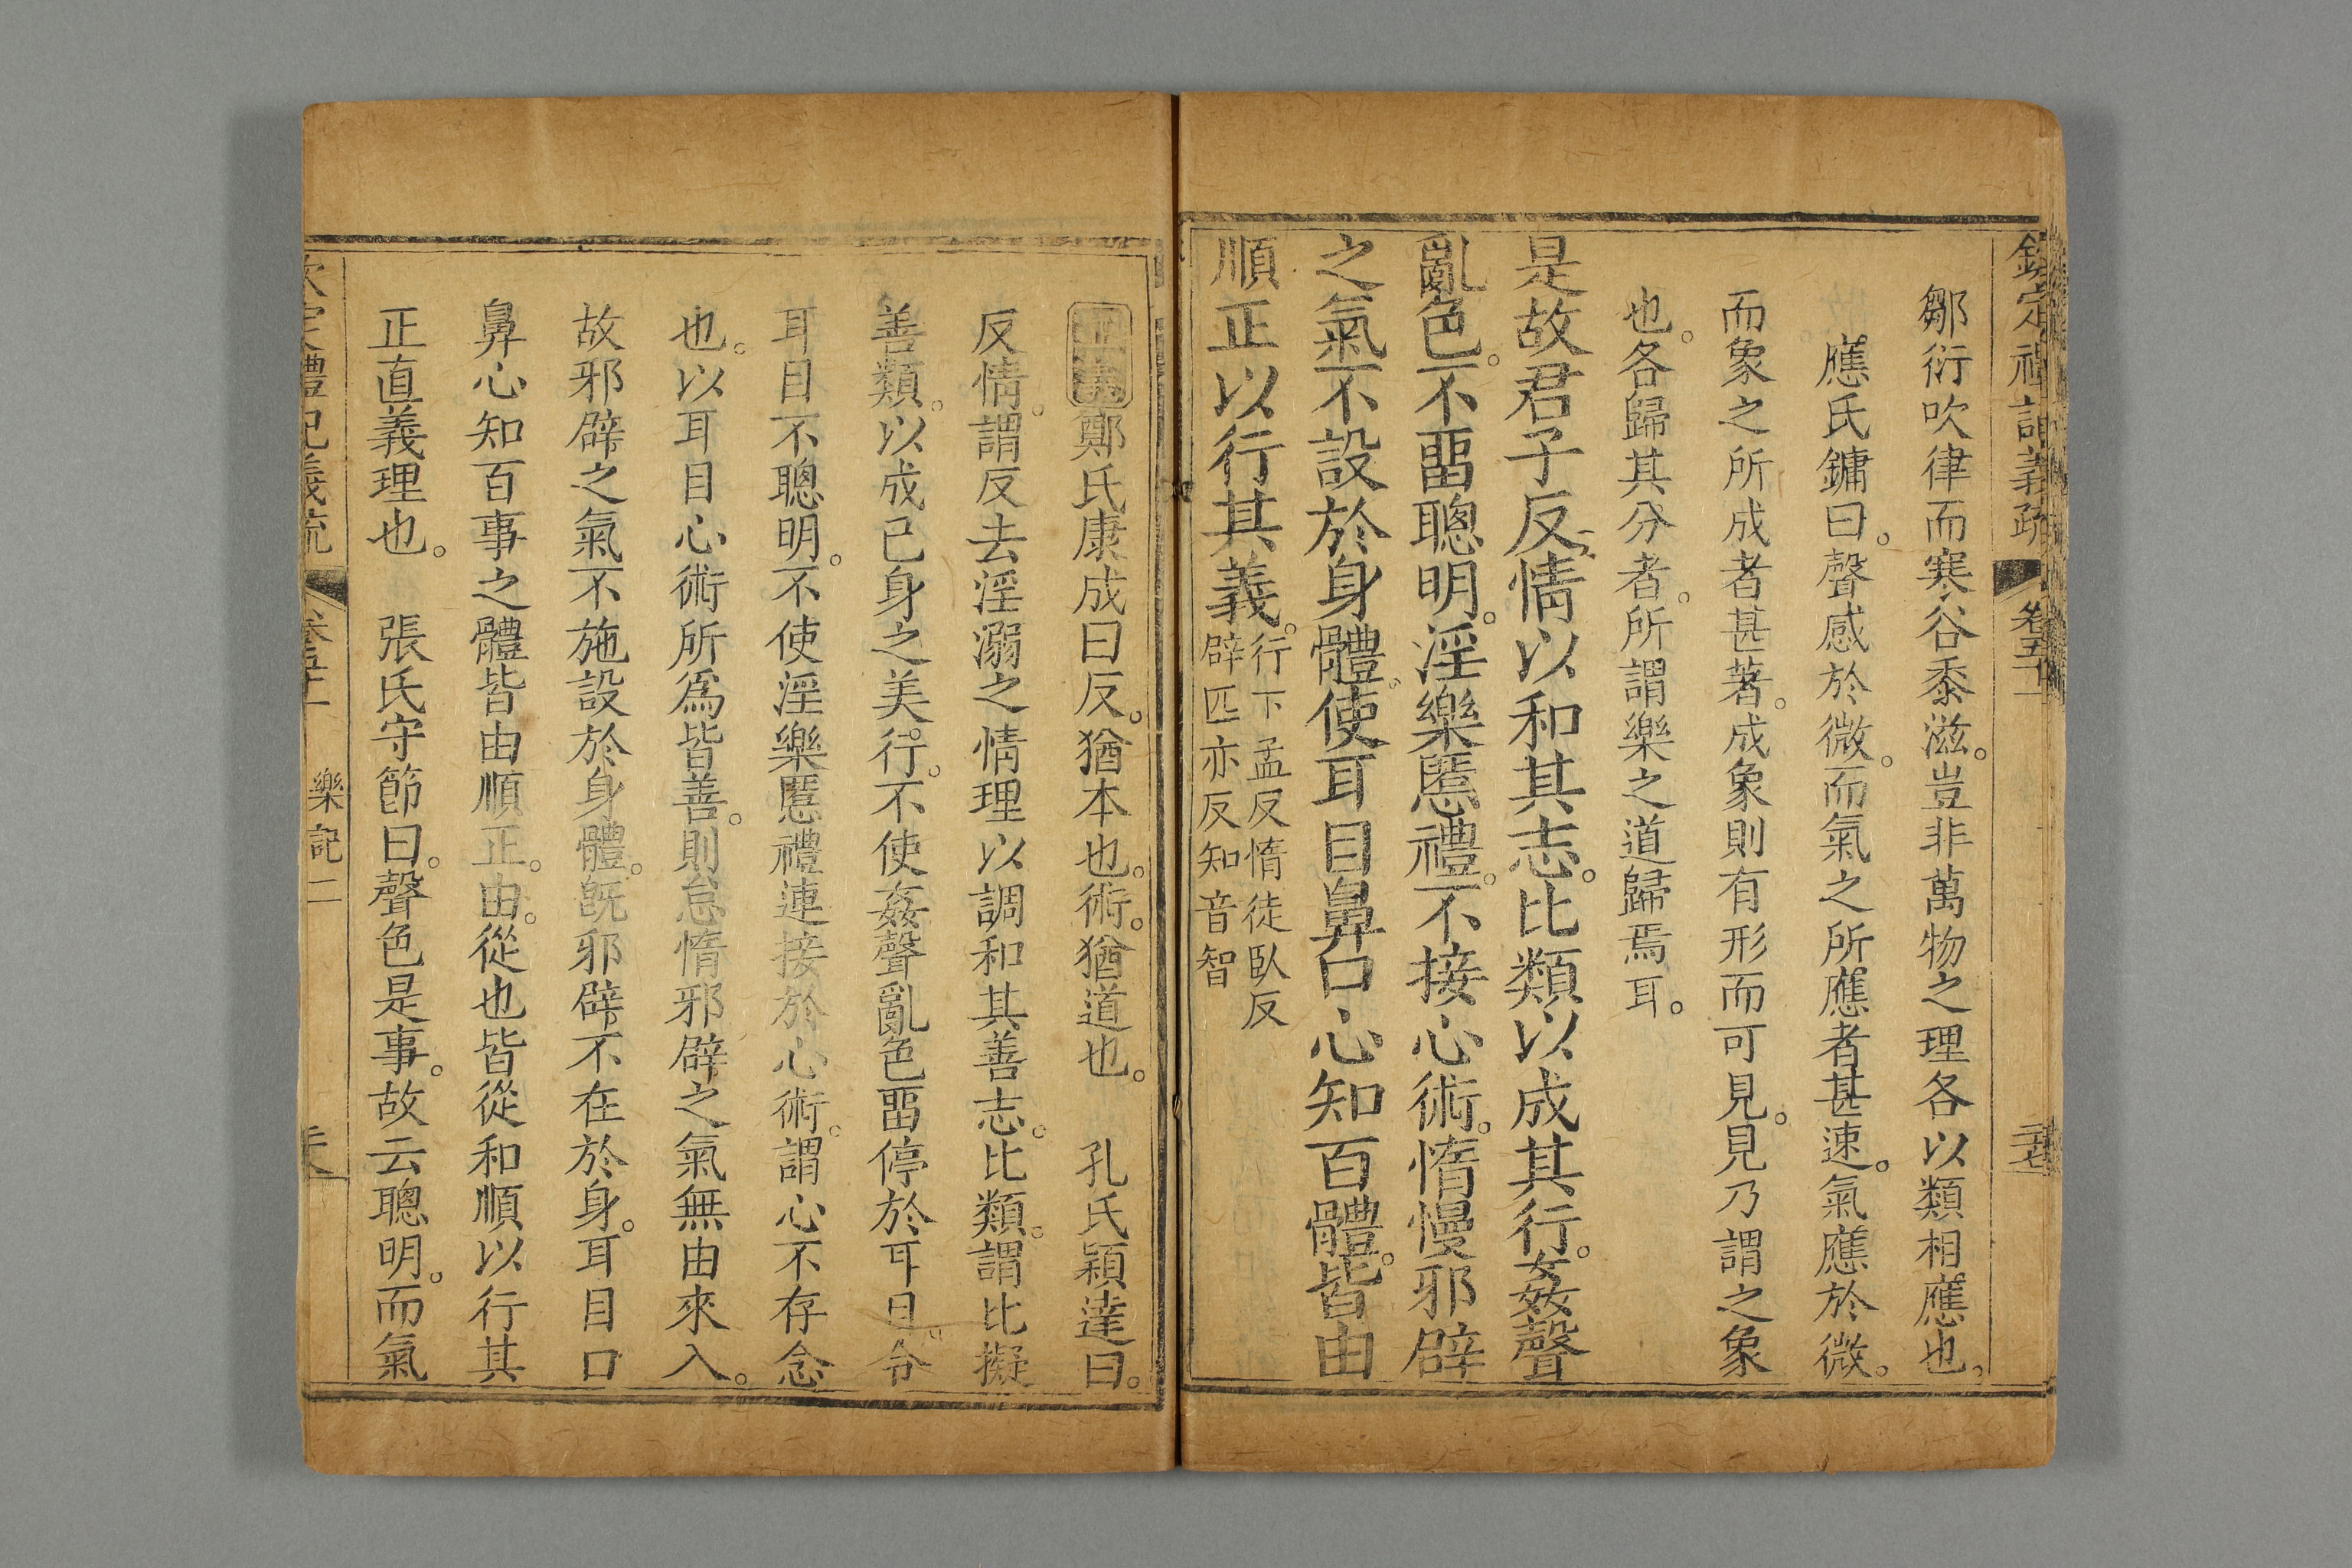 欽定禮記義疏 卷五十一
鄒衍吹律而寒谷黍滋。豈非萬物之理各以類相應也。
應氏鏞曰。聲感於微。而氣之所應者甚速。氣應於微。
而象之所成者甚著。成象則有形而可見。見乃謂之象
也。各歸其分者。所謂樂之道歸焉耳。
是故君子反情以和其志。比類以成其行。姦聲
亂色。不畱聰明。淫樂慝禮。不接心術。惰慢邪辟
之氣不設於身體。使耳目鼻口心知百體。皆由
順正以行其義。行下孟反惰徒臥反
辟匹亦反知音智
正義鄭氏康成曰反。猶本也。術。猶道也。 孔氏穎達曰。
反情。謂反去淫溺之情理以調和其善志。比類。謂比擬
善類。以成己身之美行。不使姦聲亂色畱停於耳目。令
耳目不聰明。不使淫樂慝禮連接於心術。謂心不存念
也。以耳目心術所爲皆善。則怠惰邪辟之氣無由來入。
故邪辟之氣不施設於身體。旣邪辟不在於身。耳目口
鼻心知百事之體皆由順正。由。從也皆從和順以行其
正直義理也。 張氏守節曰。聲色是事。故云聰明。而氣
欽定禮記義疏 卷五十一 樂記二